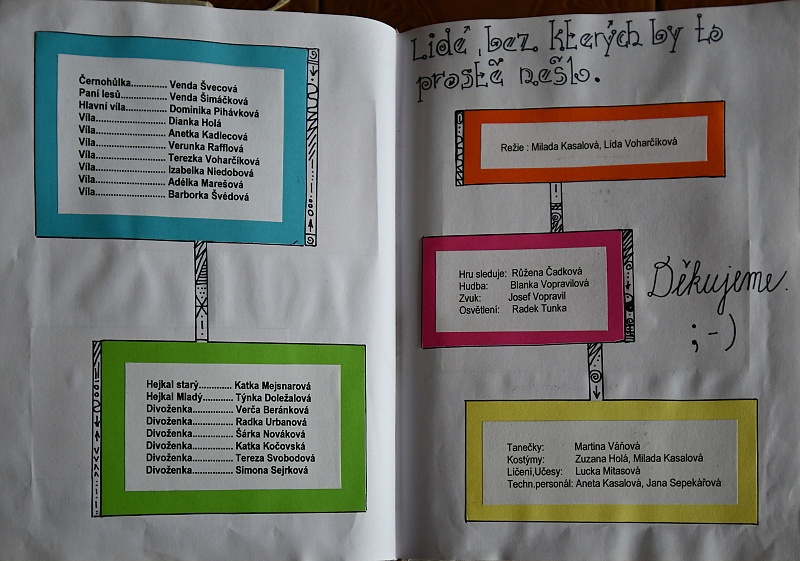 Černohůlka.............. Venda Švecová
Paní lesů.................. Venda Šimáčková
Hlavní víla................ Dominika Pihávková
Víla........................... Dianka Holá
Víla........................... Anetka Kadlecová
Víla........................... Verunka Rafflová
Víla........................... Terezka Voharčíková
Víla........................... Izabelka Niedobová
Víla........................... Adélka Marešová
Víla........................... Barborka Švédová
Hejkal starý............. Katka Mejsnarová
Hejkal Mladý........... Týnka Doležalová
Divoženka................ Verča Beránková
Divoženka................ Radka Urbanová
Divoženka................ Šárka Nováková
Divoženka................ Katka Kočovská
Divoženka................ Tereza Svobodová
Divoženka................ Simona Sejrková
Lidé, bez kterých by to
prostě nešlo.
Režie : Milada Kasalová, Lída Voharčíková
Hru sleduje: Růžena Čadková
Hudba: Blanka Vopravilová
Zvuk: Josef Vopravil
Osvětlení: Radek Tunka
Děkujeme.
;-)
Tanečky: Martina Váňová
Kostýmy: Zuzana Holá, Milada Kasalová
Líčení,Účesy: Lucka Mitasová
Techn.personál: Aneta Kasalová, Jana Sepekářová